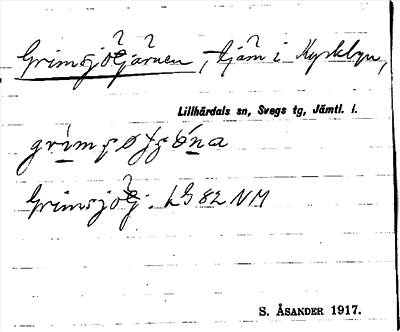 Grimsjötjärnen, tjärn i Kyrkbyn,
Lillhärdals sn, Svegs tg, Jämtl. l.
Grimsjötj. LG 82 NM
S. ÅSANDER 1917.